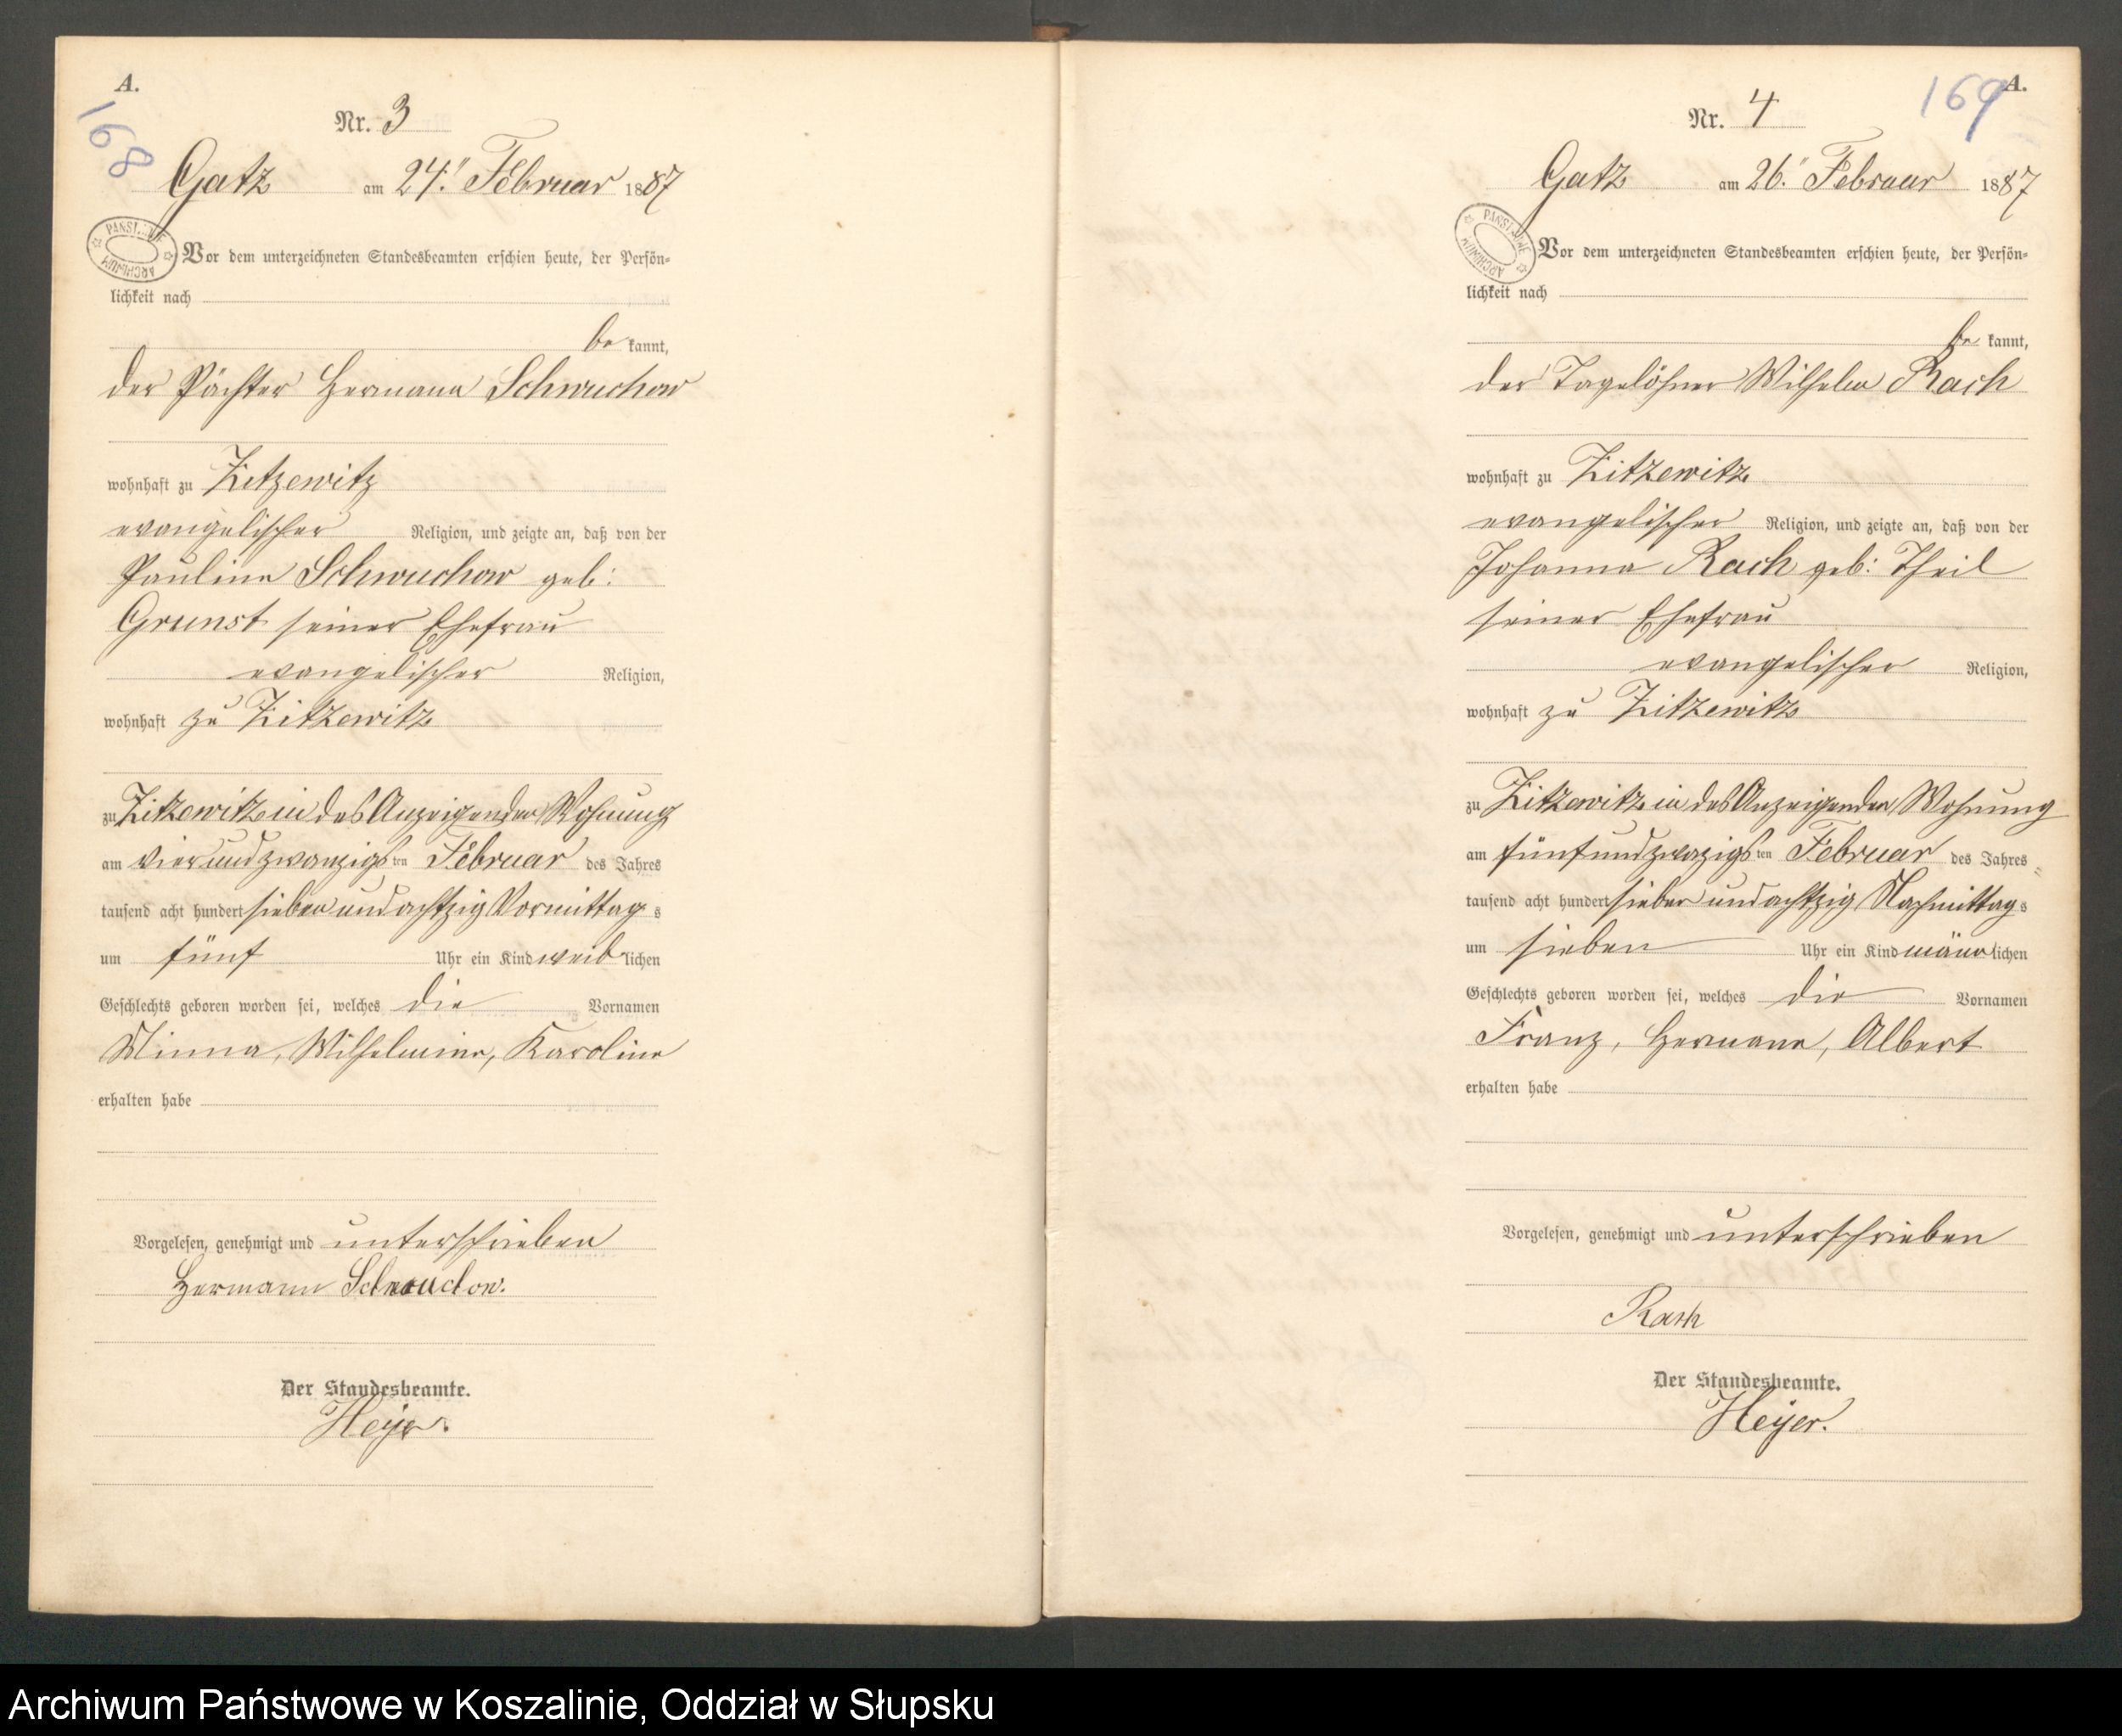 A.
168
Nr. 3
Gatz am 24." Februar 1887
PAŃSTWOWE ARCHIWUM
Vor dem unterzeichneten Standesbeamten erschien heute, der Persön=
lichkeit nach
be kannt,
der Pächter Hermann Schwuchow
wohnhaft zu Zitzewitz
evangelischer Religion, und zeigte an, daß von der
Pauline Schwuchow geb:
Grunst seiner Ehefrau
evangelischer Religion,
wohnhaft zu Zitzewitz
zu Zitzewitz in des Anzeigenden Wohnung
am vierundzwanzigsten Februar des Jahres
tausend acht hundert sieben und achtzig Vormittags
um fünf Uhr ein Kind weiblichen
Geschlechts geboren worden sei, welches die Vornamen
Minna, Wilhelmine, Karoline
erhalten habe
Vorgelesen, genehmigt und unterschrieben
Hermann Schwuchow.
Der Standesbeamte.
Heyer.
A.
169
Nr. 4
Gatz am 26." Februar 1887
PAŃSTWOWE ARCHIWUM
Vor dem unterzeichneten Standesbeamten erschien heute, der Persön=
lichkeit nach
be kannt,
der Tagelöhner Wilhelm Rach
wohnhaft zu Zitzewitz
evangelischer Religion, und zeigte an, daß von der
Johanna Rach geb: Theil
seiner Ehefrau
evangelischer Religion,
wohnhaft zu Zitzewitz
zu Zitzewitz in des Anzeigenden Wohnung
am fünfundzwazigsten Februar des Jahres
tausend acht hundert sieben und achtzig Nachmittags
um sieben Uhr ein Kind mänlichen
Geschlechts geboren worden sei, welches die Vornamen
Franz, Hermann, Albert
erhalten habe
Vorgelesen, genehmigt und unterschrieben
Rach
Der Standesbeamte.
Heyer.
Archiwum Państwowe w Koszalinie, Oddział w Słupsku